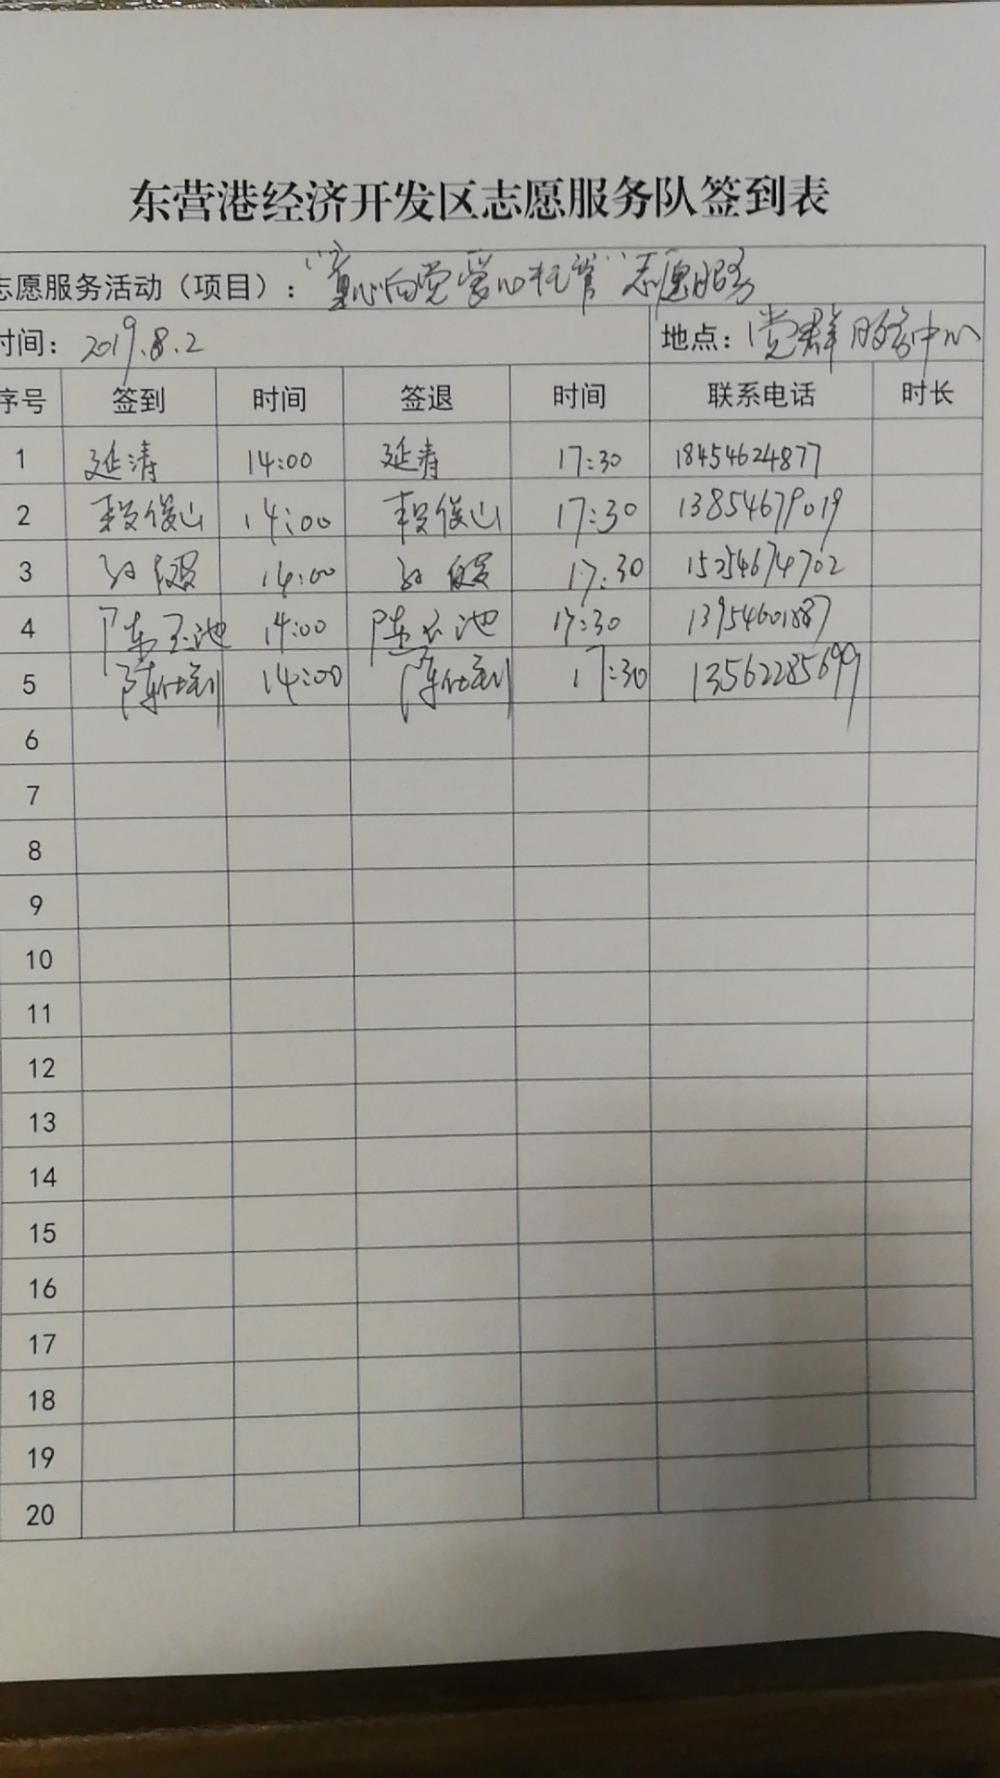 东营港经济开发区志愿服务队签到表
志愿服务活动（项目）：“童心向党 爱心托管”志愿服务
时间：2019.8.2 地点：党群服务中心
序号 签到 时间 签退 时间 联系电话 时长
1 延涛 14:00 延涛 17:30 18454624877
2 俊山 14:00 俊山 17:30 13854679019
3 14:00 17:30 15254674702
4 陈玉池 14:00 陈玉池 17:30 13954601887
5 陈仕 14:00 陈仕 17:30 13562285699
6
7
8
9
10
11
12
13
14
15
16
17
18
19
20